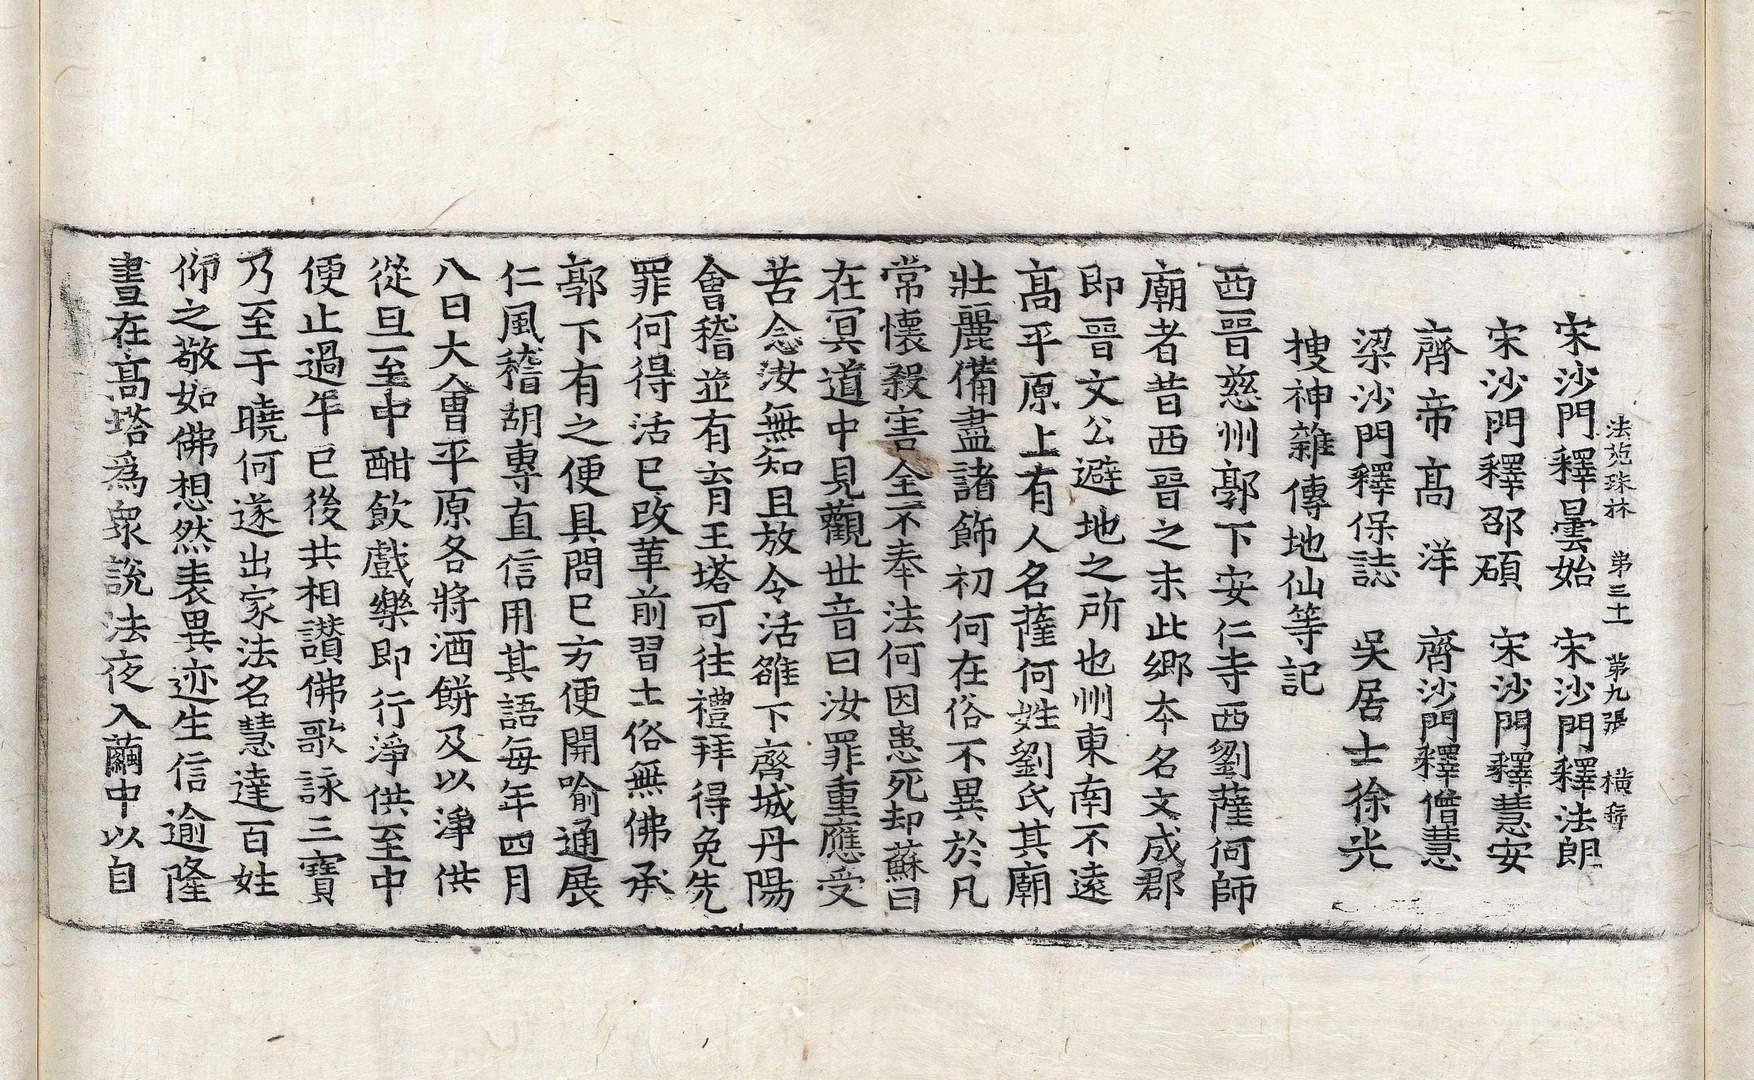 法苑珠林　第三十一　第九張　橫
宋沙門釋曇始　宋沙門釋法朗
宋沙門釋邵碩　宋沙門釋慧安
齊帝高洋　齊沙門釋僧慧
梁沙門釋保誌　吳居士徐光
搜神雜傳地仙等記
西晉慈州郭下安仁寺西劉薩何師
廟者昔西晉之末此鄉本名文成郡
即晉文公避地之所也州東南不遠
高平原上有人名薩何姓劉氏其廟
壯麗備盡諸飾初何在俗不異於凡
常懷殺害全不奉法何因患死却蘇曰
在冥道中見觀世音曰汝罪重應受
苦念汝無知且放令活雒下齊城丹陽
會稽並有育王塔可往禮拜得免先
罪何得活已改革前習土俗無佛承
郭下有之便具問已方便開喻通展
仁風稽胡專直信用其語每年四月
八日大會平原各將酒餅及以淨供
從旦至中酣飲戲樂即行淨供至中
便止過午已後共相讚佛歌詠三寶
乃至于曉何遂出家法名慧達百姓
仰之敬如佛想然表異迹生信逾隆
晝在高塔爲衆說法夜入繭中以自